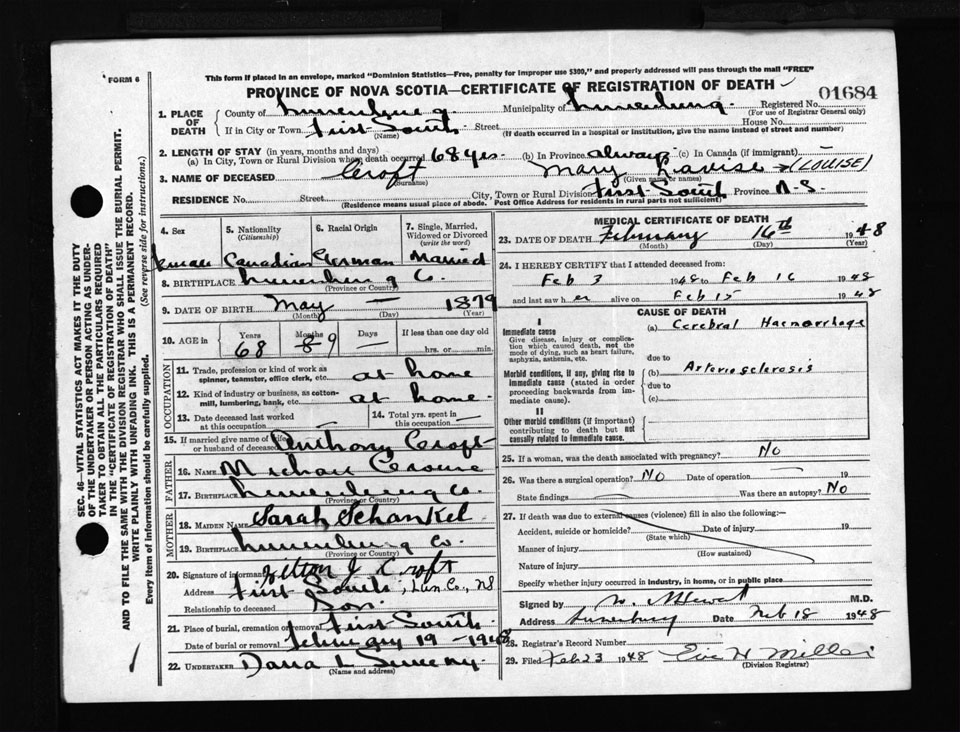 This form if placed in an envelope, marked "Dominion Statistics—Free, penalty for improper use $300," and properly addressed will pass through the mail "FREE"
FORM 6
PROVINCE OF NOVA SCOTIA—CERTIFICATE OF REGISTRATION OF DEATH
01684
1. PLACE OF DEATH County of Lunenburg Municipality of Lunenburg Registered No.
(For use of Registrar General only)
If in City or Town First South Street House No.
(Name) (If death occurred in a hospital or institution, give the name instead of street and number)
2. LENGTH OF STAY (in years, months and days)
(a) In City, Town or Rural Division where death occurred 68 yrs. (b) In Province always (c) In Canada (if immigrant)
3. NAME OF DECEASED Croft Mary Lavise (LOUISE)
(Surname) (Given name or names)
RESIDENCE No. Street City, Town or Rural Division First South Province N.S.
(Residence means usual place of abode. Post Office Address for residents in rural parts not sufficient)
4. Sex 5. Nationality (Citizenship) 6. Racial Origin 7. Single, Married, Widowed or Divorced (write the word)
Female Canadian German Married
8. BIRTHPLACE Lunenburg Co.
(Province or Country)
9. DATE OF BIRTH May — 1879
(Month) (Day) (Year)
10. AGE in Years Months Days If less than one day old
68 8 9 — hrs. or min.
OCCUPATION
11. Trade, profession or kind of work as spinner, teamster, office clerk, etc. at home
12. Kind of industry or business, as cotton-mill, lumbering, bank, etc. at home.
13. Date deceased last worked at this occupation 14. Total yrs. spent in this occupation —
15. If married give name of wife or husband of deceased Anthony Croft
FATHER
16. Name Michael
17. Birthplace Lunenburg Co.
(Province or Country)
MOTHER
18. MAIDEN NAME Sarah Schankel
19. BIRTHPLACE Lunenburg Co.
(Province or Country)
20. Signature of informant J Croft
Address First South, Lun. Co., NS
Relationship to deceased Son.
21. Place of burial, cremation or removal First South
Date of burial or removal February 19 — 1948
22. UNDERTAKER Dana L Sweeny.
(Name and address)
MEDICAL CERTIFICATE OF DEATH
23. DATE OF DEATH February 16th 1948
(Month) (Day) (Year)
24. I HEREBY CERTIFY that I attended deceased from:
Feb 3 1948 to Feb 16 1948
and last saw her alive on Feb 15 1948
CAUSE OF DEATH
I
Immediate cause (a) Cerebral Haemorrhage
Give disease, injury or complication which caused death, not the mode of dying, such as heart failure, asphyxia, asthenia, etc.
due to
Morbid conditions, if any, giving rise to immediate cause (stated in order proceeding backwards from immediate cause).
(b) Arteriosclerosis
due to
(c)
II
Other morbid conditions (if important) contributing to death but not causally related to immediate cause.
25. If a woman, was the death associated with pregnancy? No
26. Was there a surgical operation? No Date of operation 19
State findings Was there an autopsy? No
27. If death was due to external causes (violence) fill in also the following:—
Accident, suicide or homicide? Date of injury 19
(State which)
Manner of injury
(How sustained)
Nature of injury
Specify whether injury occurred in industry, in home, or in public place
Signed by M.D.
Address Lunenburg Date Feb 18 1948
28. Registrar's Record Number
29. Filed Feb 23 1948
(Division Registrar)
SEC. 46—VITAL STATISTICS ACT MAKES IT THE DUTY
OF THE UNDERTAKER OR PERSON ACTING AS UNDER-
TAKER TO OBTAIN ALL THE PARTICULARS REQUIRED
IN THE "CERTIFICATE OF REGISTRATION OF DEATH"
AND TO FILE THE SAME WITH THE DIVISION REGISTRAR WHO SHALL ISSUE THE BURIAL PERMIT.
WRITE PLAINLY WITH UNFADING INK. THIS IS A PERMANENT RECORD.
Every item of information should be carefully supplied. (See reverse side for instructions.)